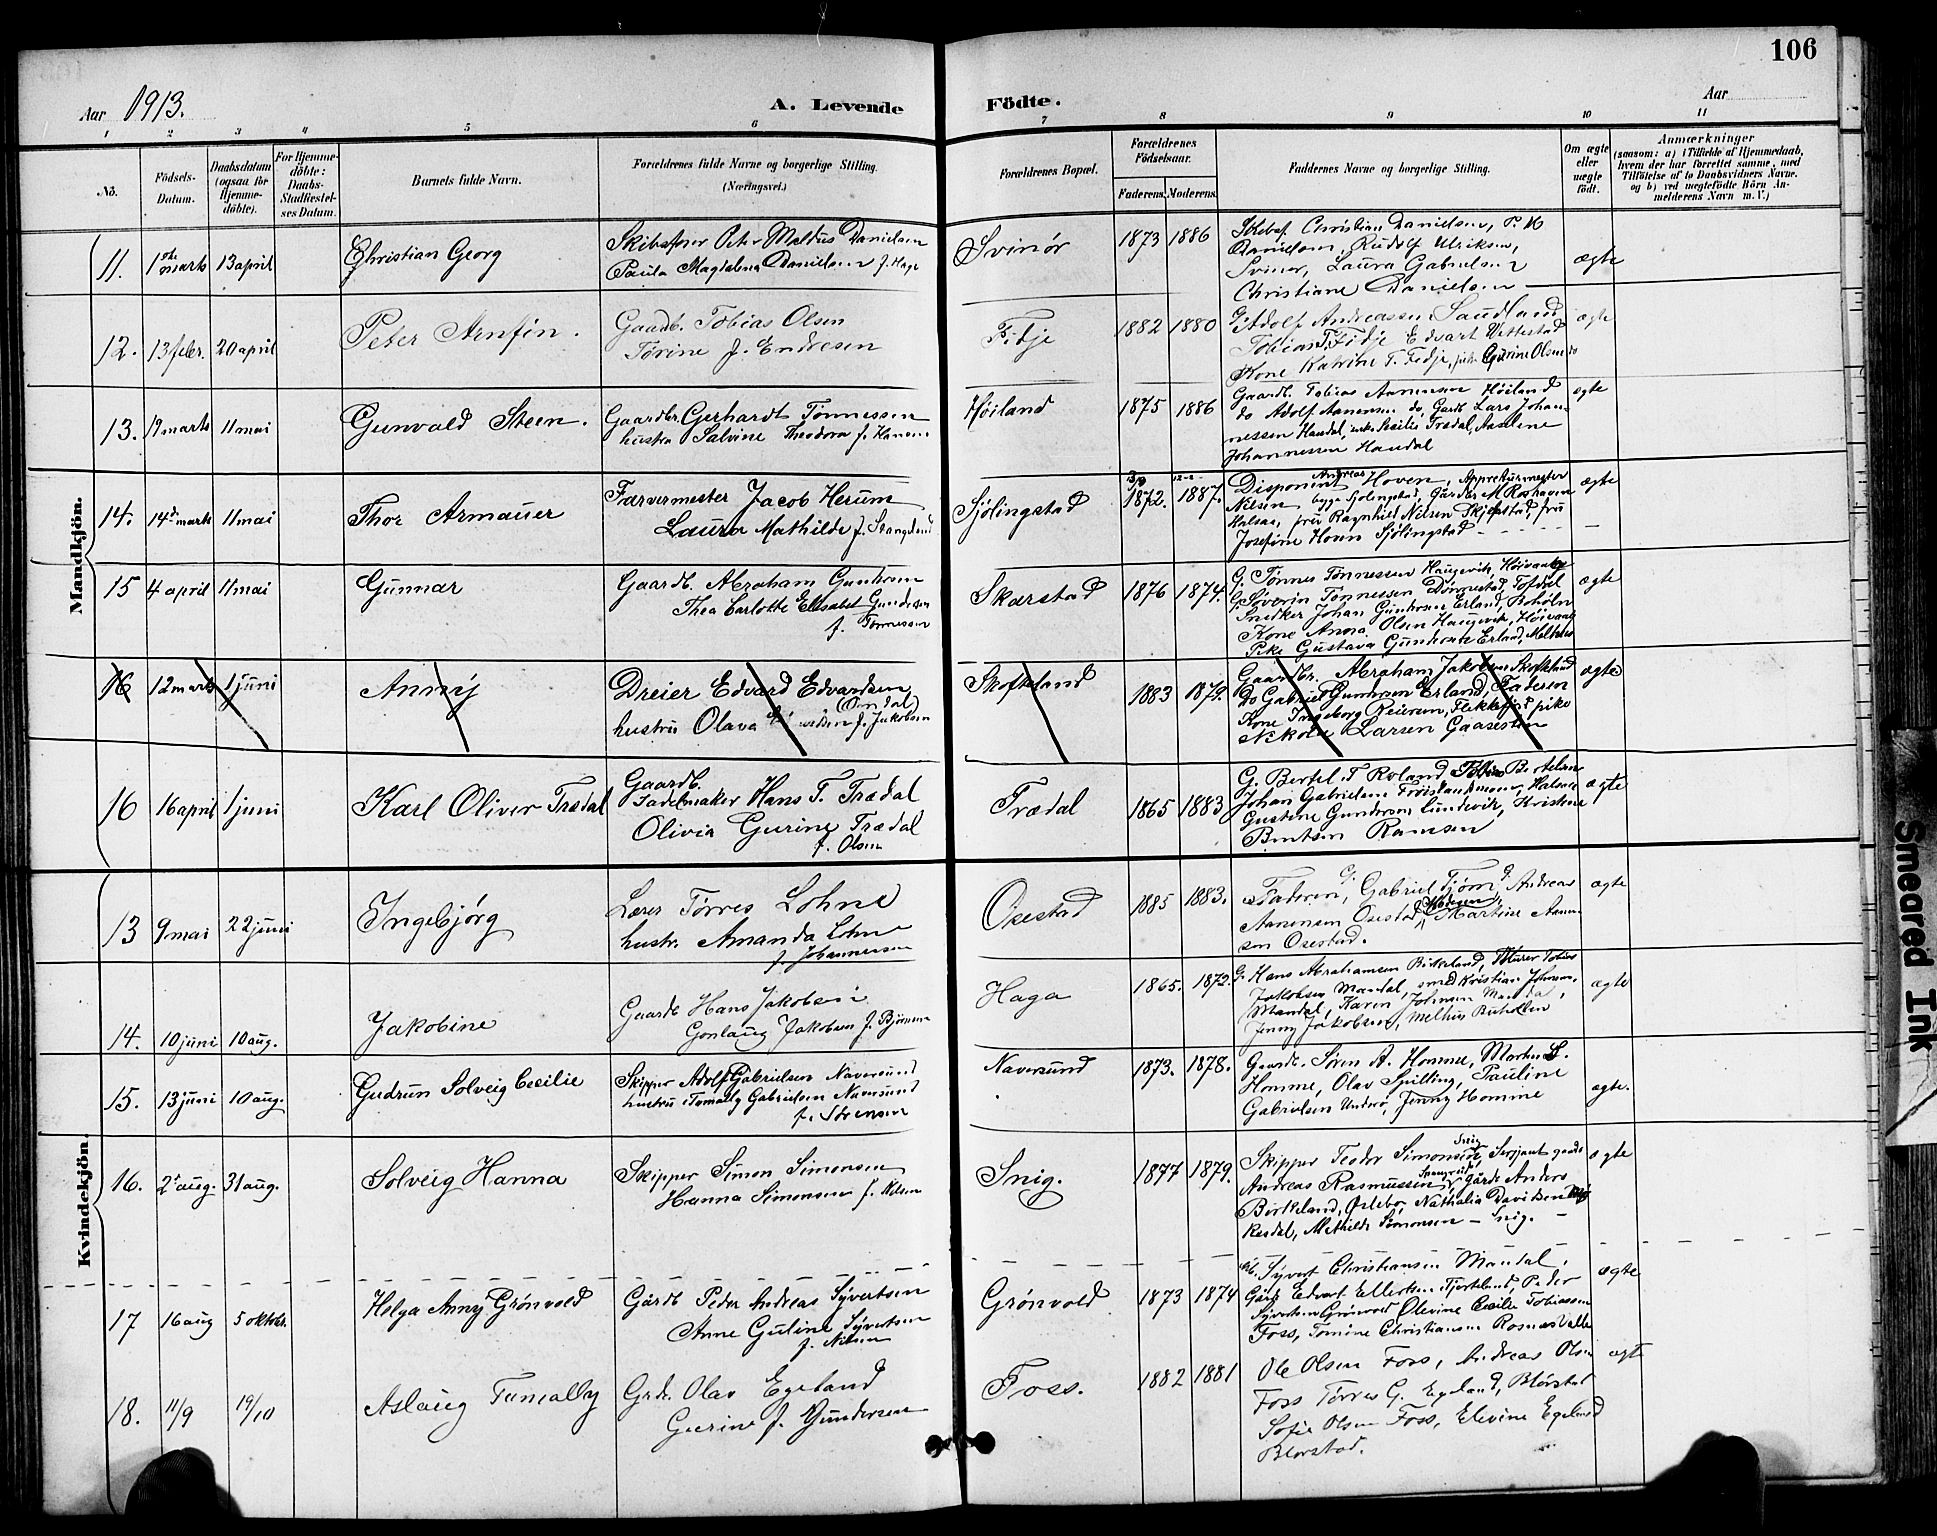 106
Aar 1913.
A. Levende Födte.
Aar
1 2 3 4 5 6 7 8 9 10 11
No.
Födsels-Datum.
Daabsdatum (ogsaa for Hjemme-döbte).
For Hjemme-döbte: Daabs-Stadfæstel-ses Datum.
Barnets fulde Navn.
Forældrenes fulde Navne og borgerlige Stilling. (Næringsvei.)
Forældrenes Bopæl.
Forældrenes Födselsaar.
Faderens. Moderens.
Faddernes Navne og borgerlige Stilling.
Om ægte eller uægte födt.
Anmærkninger
(saasom: a) i Tilfælde af Hjemmedaab, hvem der har forrettet samme, med Tilföielse af to Daabsvidners Navne, og b) ved uægtefödte Börn An-melderens Navn m. V.)
Mandkjön.
11. 1 marts 13 april Christian Georg
Peter Meldus Danielsen
Paula Magdalena Danielsen f. Hage
Svinør 1873 1886
Christian Danielsen, P. M
Danielsen, Rudolf Ulriksen,
Svinør, Laura Gabrielsen
Christiane Danielsen
ægte
12. 13 febr. 20 april Peter Arnfin.
Gaardb. Tobias Olsen
Tørine f. Endresen
Fidje 1882 1880
Adolf Andreassen Saudland
Tobias T. Fidje Edvart Vittestad
Kone Katrine T. Fidje, pike Gurine Olsen
ægte
13. 19 marts 11 mai Gunvald Steen.
Gaardbr Gerhardt Tønnessen
hustru Salvine Theodora f. Hansen
Høiland 1875 1886
Gaardb. Tobias Aanensen Høiland
do Adolf Aanensen do, Gardb Lars Johan-
nessen Haudal, Trædal, Aaselene
Johannessen Haudal
ægte
14. 14 marts 11 mai Thor Armauer
Farvermester Jacob Herum
Laura Mathilde f. Stangeland
Sjölingstad 1872. 1887.
Disponent Andreas Hoven, Appreturmester
Nilsen bygge Sjölingstad, Gårdbr M Roshaven
Halsaa, frü Ragnhild Nilsen Skjelstad, frü
Josefine Hoven Sjölingstad
ægte
15 4 april 11 mai Gunnar
Gaardb. Abraham Gundersen
Thea Carlotte Elisabet Gundersen
f. Tønnessen
Skarstad 1876 1874.
G. Tønnes Tønnessen Haugevik, Høivaag
G. Severin Tønnessen Dønnestad, Tofdal
Snedker Johan Gundersen Erland, Boholm
Kone Anna Olsen Haugevik, Høivaag
Pike Gustava Gundersen Erland, Malthus
ægte
16 12 marts 1 juni Anny
Dreier Edvard Edvardsen
(Omdal)
hustru Olava f. Jakobsen
Skofteland 1883 1879.
Gaardbr. Abraham Jakobsen Skofteland
Do Gabriel Gundersen Erland, Faderen
Kone Ingeborg Reiersen, Flekkefjord pike
Nikoline Larsen Gaaseste
ægte
16 16 april 1 juni Karl Oliver Trædal
Gaardb.
Sadelmaker Hans T. Trædal
Olivia Gurine Trædal
f. Olsen
Trædal 1865 1883
G. Bertel T Roland Tobias Bertelsen
Johan Gabrielsen Halsaa
Gustine Gundersen Lundevik, Kristine
Bentsen Ramsen
ægte
Kvindekjön.
13 9 mai 22 juni Ingebjørg
Lærer Tørres Lohne
hustr. Amanda Lohne
f. Johannessen
Osestad 1885 1883.
Faderen, G. Gabriel Tjøm, G. Andreas
Aanensen Osestad, Martine Aanen-
sen Osestad.
ægte
14. 10 juni 10 aug. Jakobine
Gaardb Hans Jakobsen
Gonlaug Jakobsen f. Bjørnsen
Haga 1865. 1872.
G. Hans Abrahamsen Birkeland, Murer Tobias
Jakobsen Mandal, smed Kristian Johnsen
Mandal, Karen Johnsen Mandal,
Jenny Jakobsen, Melhus
ægte
15. 13 juni 10 aug. Gudrun Solveig Cecilie
Skipper Adolf Gabrielsen Naversund
hustru Tomally Gabrielsen Naversund
f. Sørensen
Naversund 1873. 1878.
Gaardb. Søren A. Homme, Morten S.
Homme, Olav Spilling, Pauline
Gabrielsen Underø, Jenny Homme
ægte.
16. 2 aug. 31 aug. Solveig Hanna
Skipper Simon Simonsen
Hanna Simonsen f. Nilsen
Snig. 1877 1879.
Skipper Teodor Simonsen Snig, Serjant
Andreas Rasmussen Spangreid, Gårdb Anders
Birkeland, Øslebø, Nathalia Davidsen
Mathilde Simonsen - Snig. -
ægte
17 16 aug 5 oktobr. Helga Anny Grønvold
Gårdb Peder Andreas Syvertsen
Anne Guline Syvertsen
f. Nilsen
Grønvold 1873 1874
Syvert Christiansen Mandal,
Gårdb Edvart Ellertsen Peder
Syvertsen Grønvold Olevine Cecilie Tobiassen
Foss, Tomine Christiansen Rosnæs Valle
ægte
18. 11/9 19/10 Aslaug Tomally
Grdr. Olav Egeland
Gurine f. Gundersen
Foss. 1882 1881
Ole Olsen Foss, Andreas Olsen
Foss Tørres G. Egeland, Blørstad
Sofie Olsen Foss, Elevine Egeland
Blørstad.
ægte
Smeared Ink